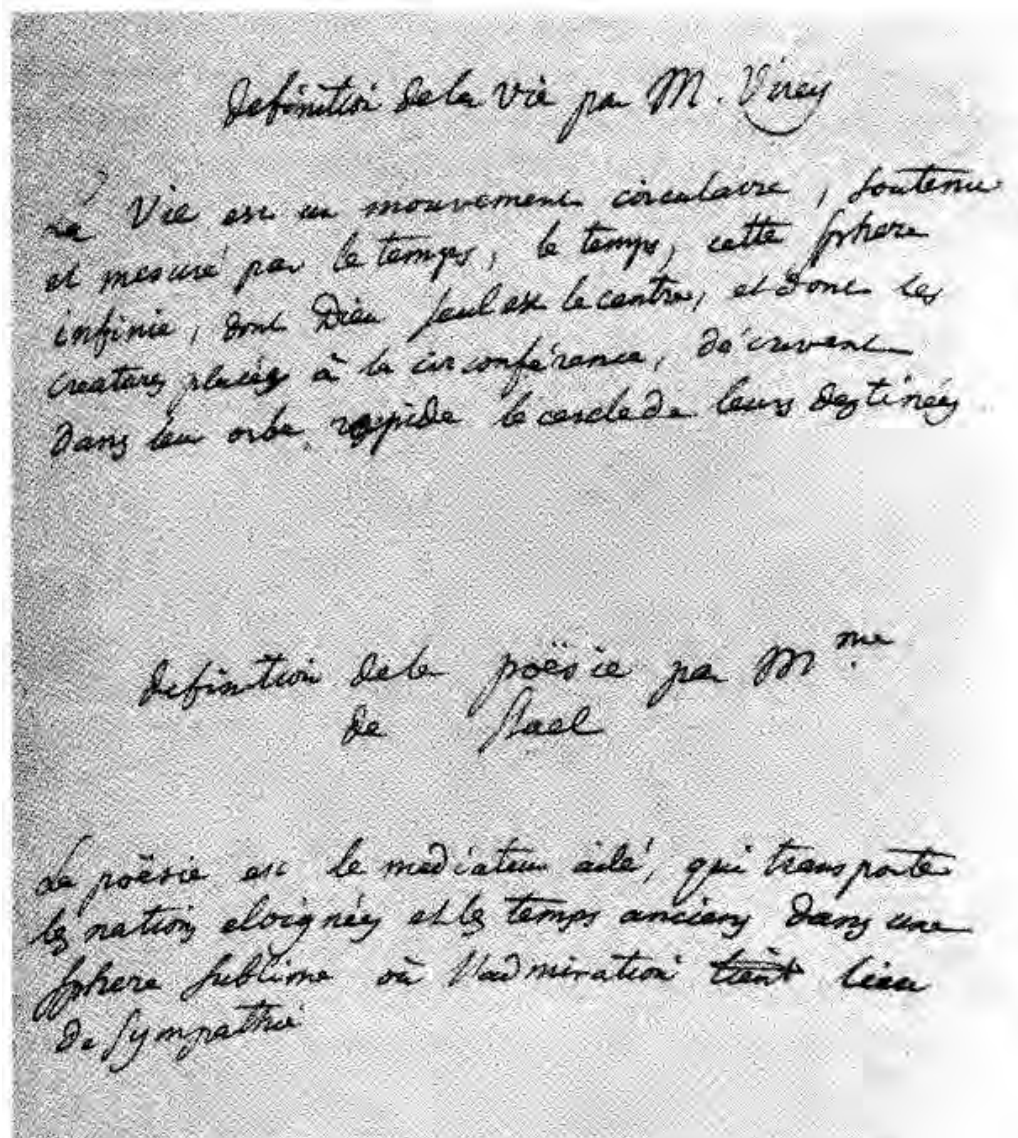 definition de la vie par M. Virey
La Vie est un mouvement circulaire, soutenu
et mesuré par le temps, le temps, cette sphere
infinie, dont Dieu seul est le centre, et dont les
creatures placées à la circonférence, décrivent
dans leur orbe rapide le cercle de leurs destinées
definition de la poësie par Mme
de Stael
La poësie est le mediateur ailé, qui transporte
les nations eloignées et les temps anciens dans une
sphere sublime où l'admiration tient lieu
de sympathie